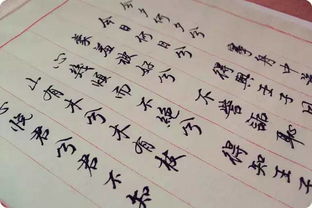 今夕何夕兮 搴舟中
今日何日兮 得與王子
蒙羞被好兮 不訾詬恥
心幾煩而不絕兮 得知王子
山有木兮木有枝
心悅君兮君不知